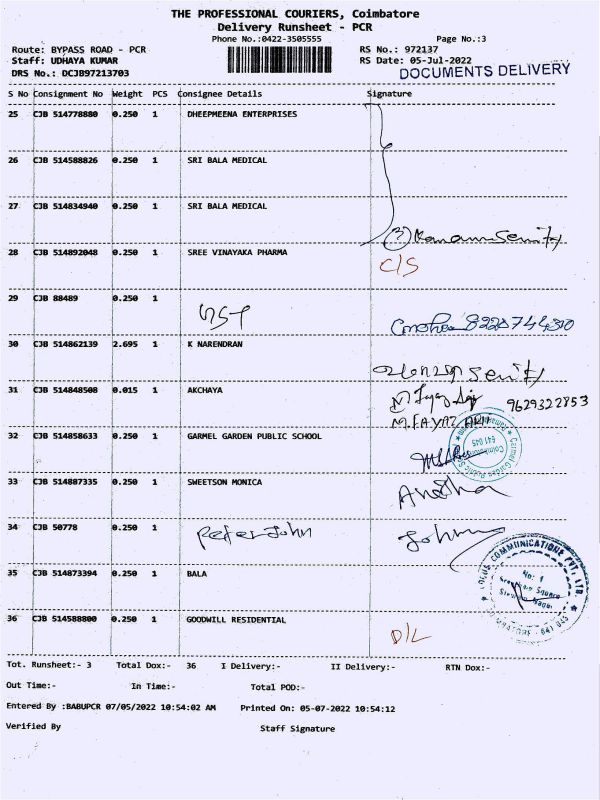 THE PROFESSIONAL COURIERS, Coimbatore
Delivery Runsheet - PCR
Phone No.:0422-3505555 Page No.:3
Route: BYPASS ROAD - PCR RS No.: 972137
Staff: UDHAYA KUMAR RS Date: 05-Jul-2022
DRS No.: DCJB97213703 DOCUMENTS DELIVERY
S No Consignment No Weight PCS Consignee Details Signature
25 CJB 514778880 0.250 1 DHEEPMEENA ENTERPRISES
26 CJB 514588826 0.250 1 SRI BALA MEDICAL
27 CJB 514834940 0.250 1 SRI BALA MEDICAL
28 CJB 514892048 0.250 1 SREE VINAYAKA PHARMA
C/S
29 CJB 88489 0.250 1
GST
8220744310
30 CJB 514862139 2.695 1 K NARENDRAN
31 CJB 514848508 0.015 1 AKCHAYA
9629322853
32 CJB 514858633 0.250 1 GARMEL GARDEN PUBLIC SCHOOL
33 CJB 514887335 0.250 1 SWEETSON MONICA
Anitha
34 CJB 50778 0.250 1 Peter John John
35 CJB 514873394 0.250 1 BALA
COMMUNICATIONS PVT. LTD.
No: 1
COIMBATORE - 641 045
36 CJB 514588800 0.250 1 GOODWILL RESIDENTIAL
D/L
Tot. Runsheet:- 3 Total Dox:- 36 I Delivery:- II Delivery:- RTN Dox:-
Out Time:- In Time:- Total POD:-
Entered By :BABUPCR 07/05/2022 10:54:02 AM Printed On: 05-07-2022 10:54:12
Verified By Staff Signature